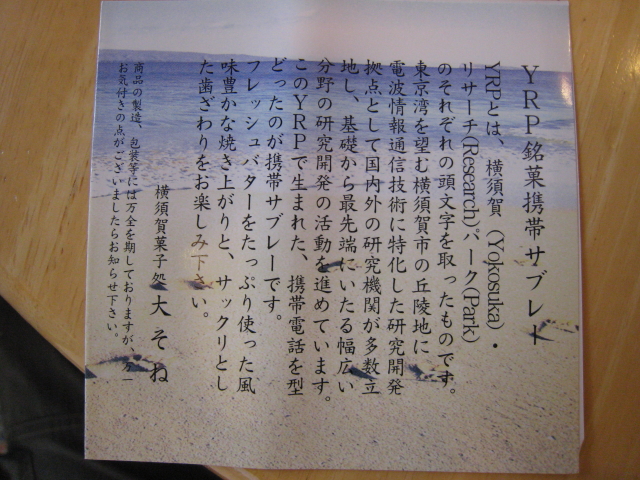 YRP銘菓携帯サブレー
YRPとは、横須賀（Yokosuka）・
リサーチ(Research)パーク(Park)
のそれぞれの頭文字を取ったものです。
東京湾を望む横須賀市の丘陵地に
電波情報通信技術に特化した研究開発
拠点として国内外の研究機関が多数立
地し、基礎から最先端にいたる幅広い
分野の研究開発の活動を進めています。
このYRPで生まれた、携帯電話を型
どったのが携帯サブレーです。
フレッシュバターをたっぷり使った風
味豊かな焼き上がりと、サックリとし
た歯ざわりをお楽しみ下さい。
横須賀菓子処 大そね
商品の製造、包装等には万全を期しておりますが、万一
お気付きの点がございましたらお知らせ下さい。